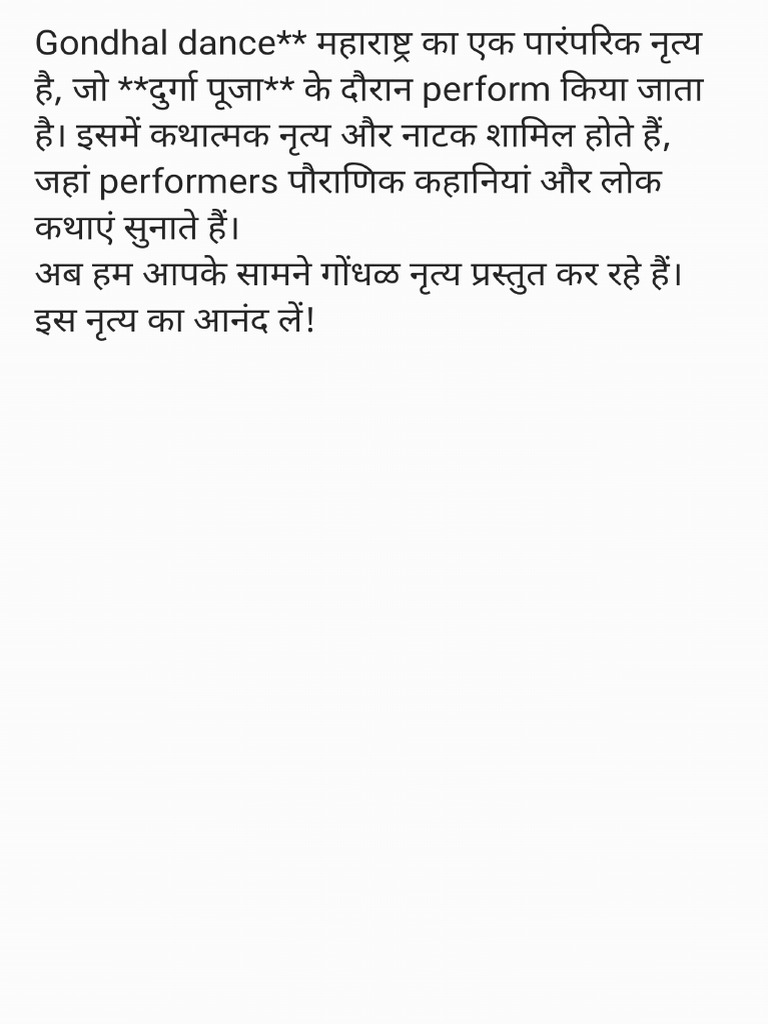 Gondhal dance** महाराष्ट्र का एक पारंपरिक नृत्य
है, जो **दुर्गा पूजा** के दौरान perform किया जाता
है। इसमें कथात्मक नृत्य और नाटक शामिल होते हैं,
जहां performers पौराणिक कहानियां और लोक
कथाएं सुनाते हैं।
अब हम आपके सामने गोंधळ नृत्य प्रस्तुत कर रहे हैं।
इस नृत्य का आनंद लें!